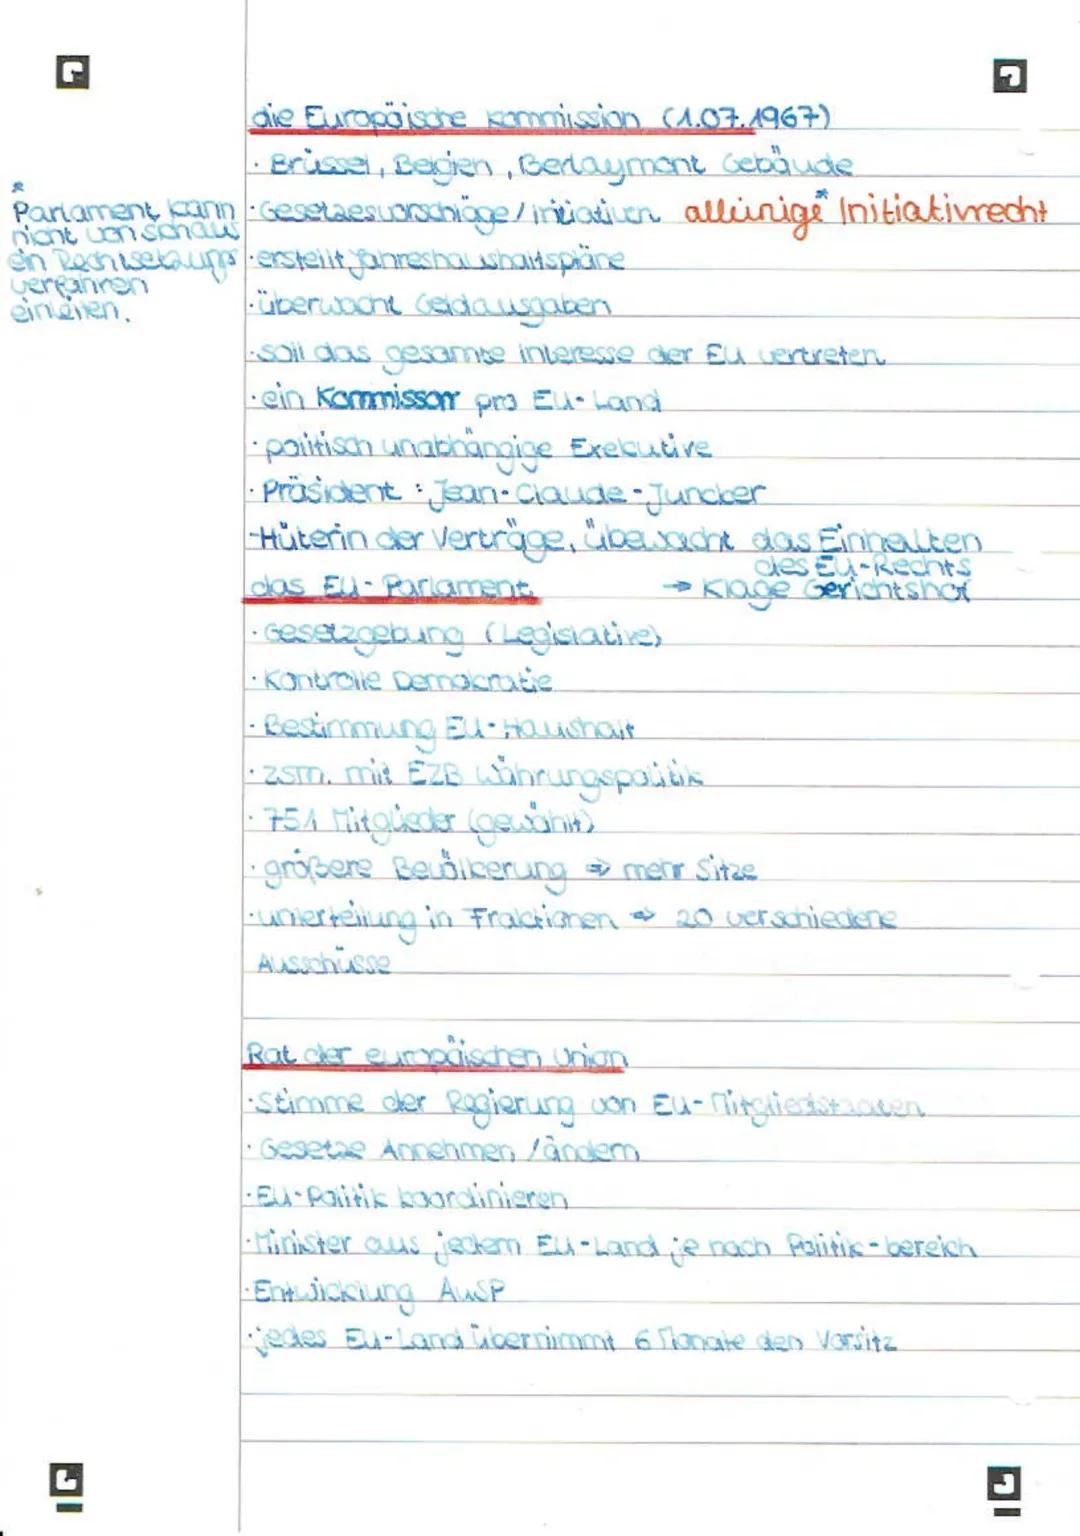 die Europäische Kommission (1.07.1967)
· Brüssel, Belgien, Berlaymont Gebäude
· Gesetzesvorschläge / initiativen alleinige* Initiativrecht
*
Parlament kann
nicht von sich aus
ein Rechtsetzungs
verfahren
einleiten.
· erstellt Jahreshaushaltspläne
· überwacht Geldausgaben
· soll das gesamte interesse der EU vertreten
· ein Kommissar pro EU-Land
· politisch unabhängige Exekutive
· Präsident: Jean-Claude-Juncker
-Hüterin der Verträge, überwacht das Einhalten
des EU-Rechts
→ Klage Gerichtshof
das EU-Parlament
· Gesetzgebung (Legislative)
· Kontrolle Demokratie
· Bestimmung EU-Haushalt
· zsm. mit EZB Währungspolitik
· 751 Mitglieder (gewählt)
· größere Bevölkerung ⇒ mehr Sitze
· unterteilung in Fraktionen ⇒ 20 verschiedene
Ausschüsse
Rat der europäischen Union
· Stimme der Regierung von EU-Mitgliedstaaten
· Gesetze Annehmen / ändern
· EU-Politik koordinieren
· Minister aus jedem EU-Land je nach Politik-bereich
· Entwicklung AuSP
· jedes EU-Land übernimmt 6 Monate den Vorsitz